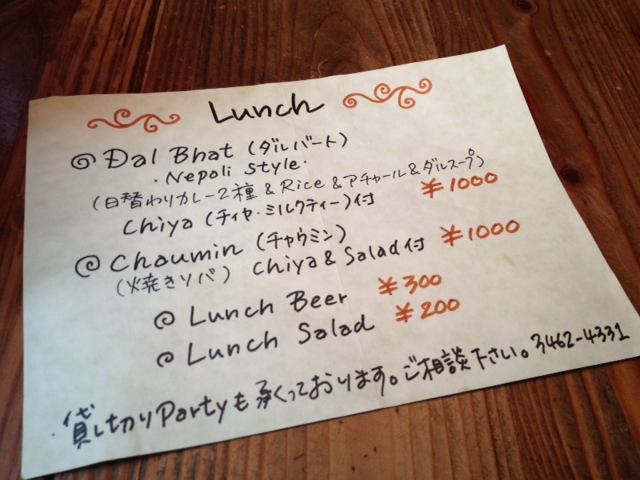 Lunch
Dal Bhat (ダルバート)
・Nepoli Style・
(日替わりカレー2種&Rice&アチャール&ダルスープ)
Chiya (チィヤ・ミルクティー)付 ¥1000
Chaumin (チャウミン)
(焼きソバ) Chiya & Salad付 ¥1000
Lunch Beer ¥300
Lunch Salad ¥200
・貸し切りPartyも承くっております。ご相談下さい。3462-4331